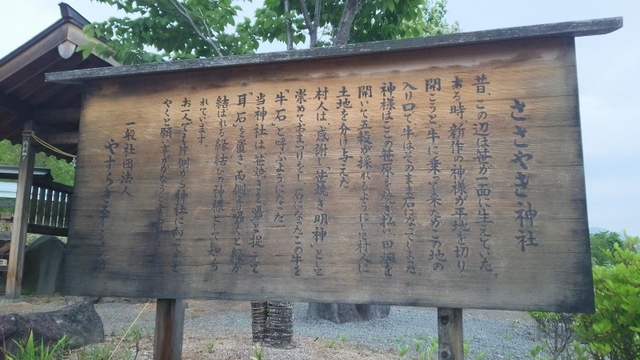 ささやき神社
昔、この辺は笹が一面に生えていた。
ある時、新作の神様が平地を切り
開こうと牛に乗って来たがこの地の
入り口で牛はそのまま石になってしまった
神様はこの笹原を焼き払い田畑を
開いて五穀が採れるようにして村人に
土地を分け与えた
村人は、感謝し笹焼き明神として
崇めておまつりし、石になったこの牛を
「牛石」と呼ぶようになった
当神社は笹焼きを囁と捉えて
「耳石」を置き、両側から囁くと縁が
結ばれる縁結びの神様として
れています。
お一人でも片側から神社に向って
やくと願い事がかなう
一般社団法人
やすらぎ